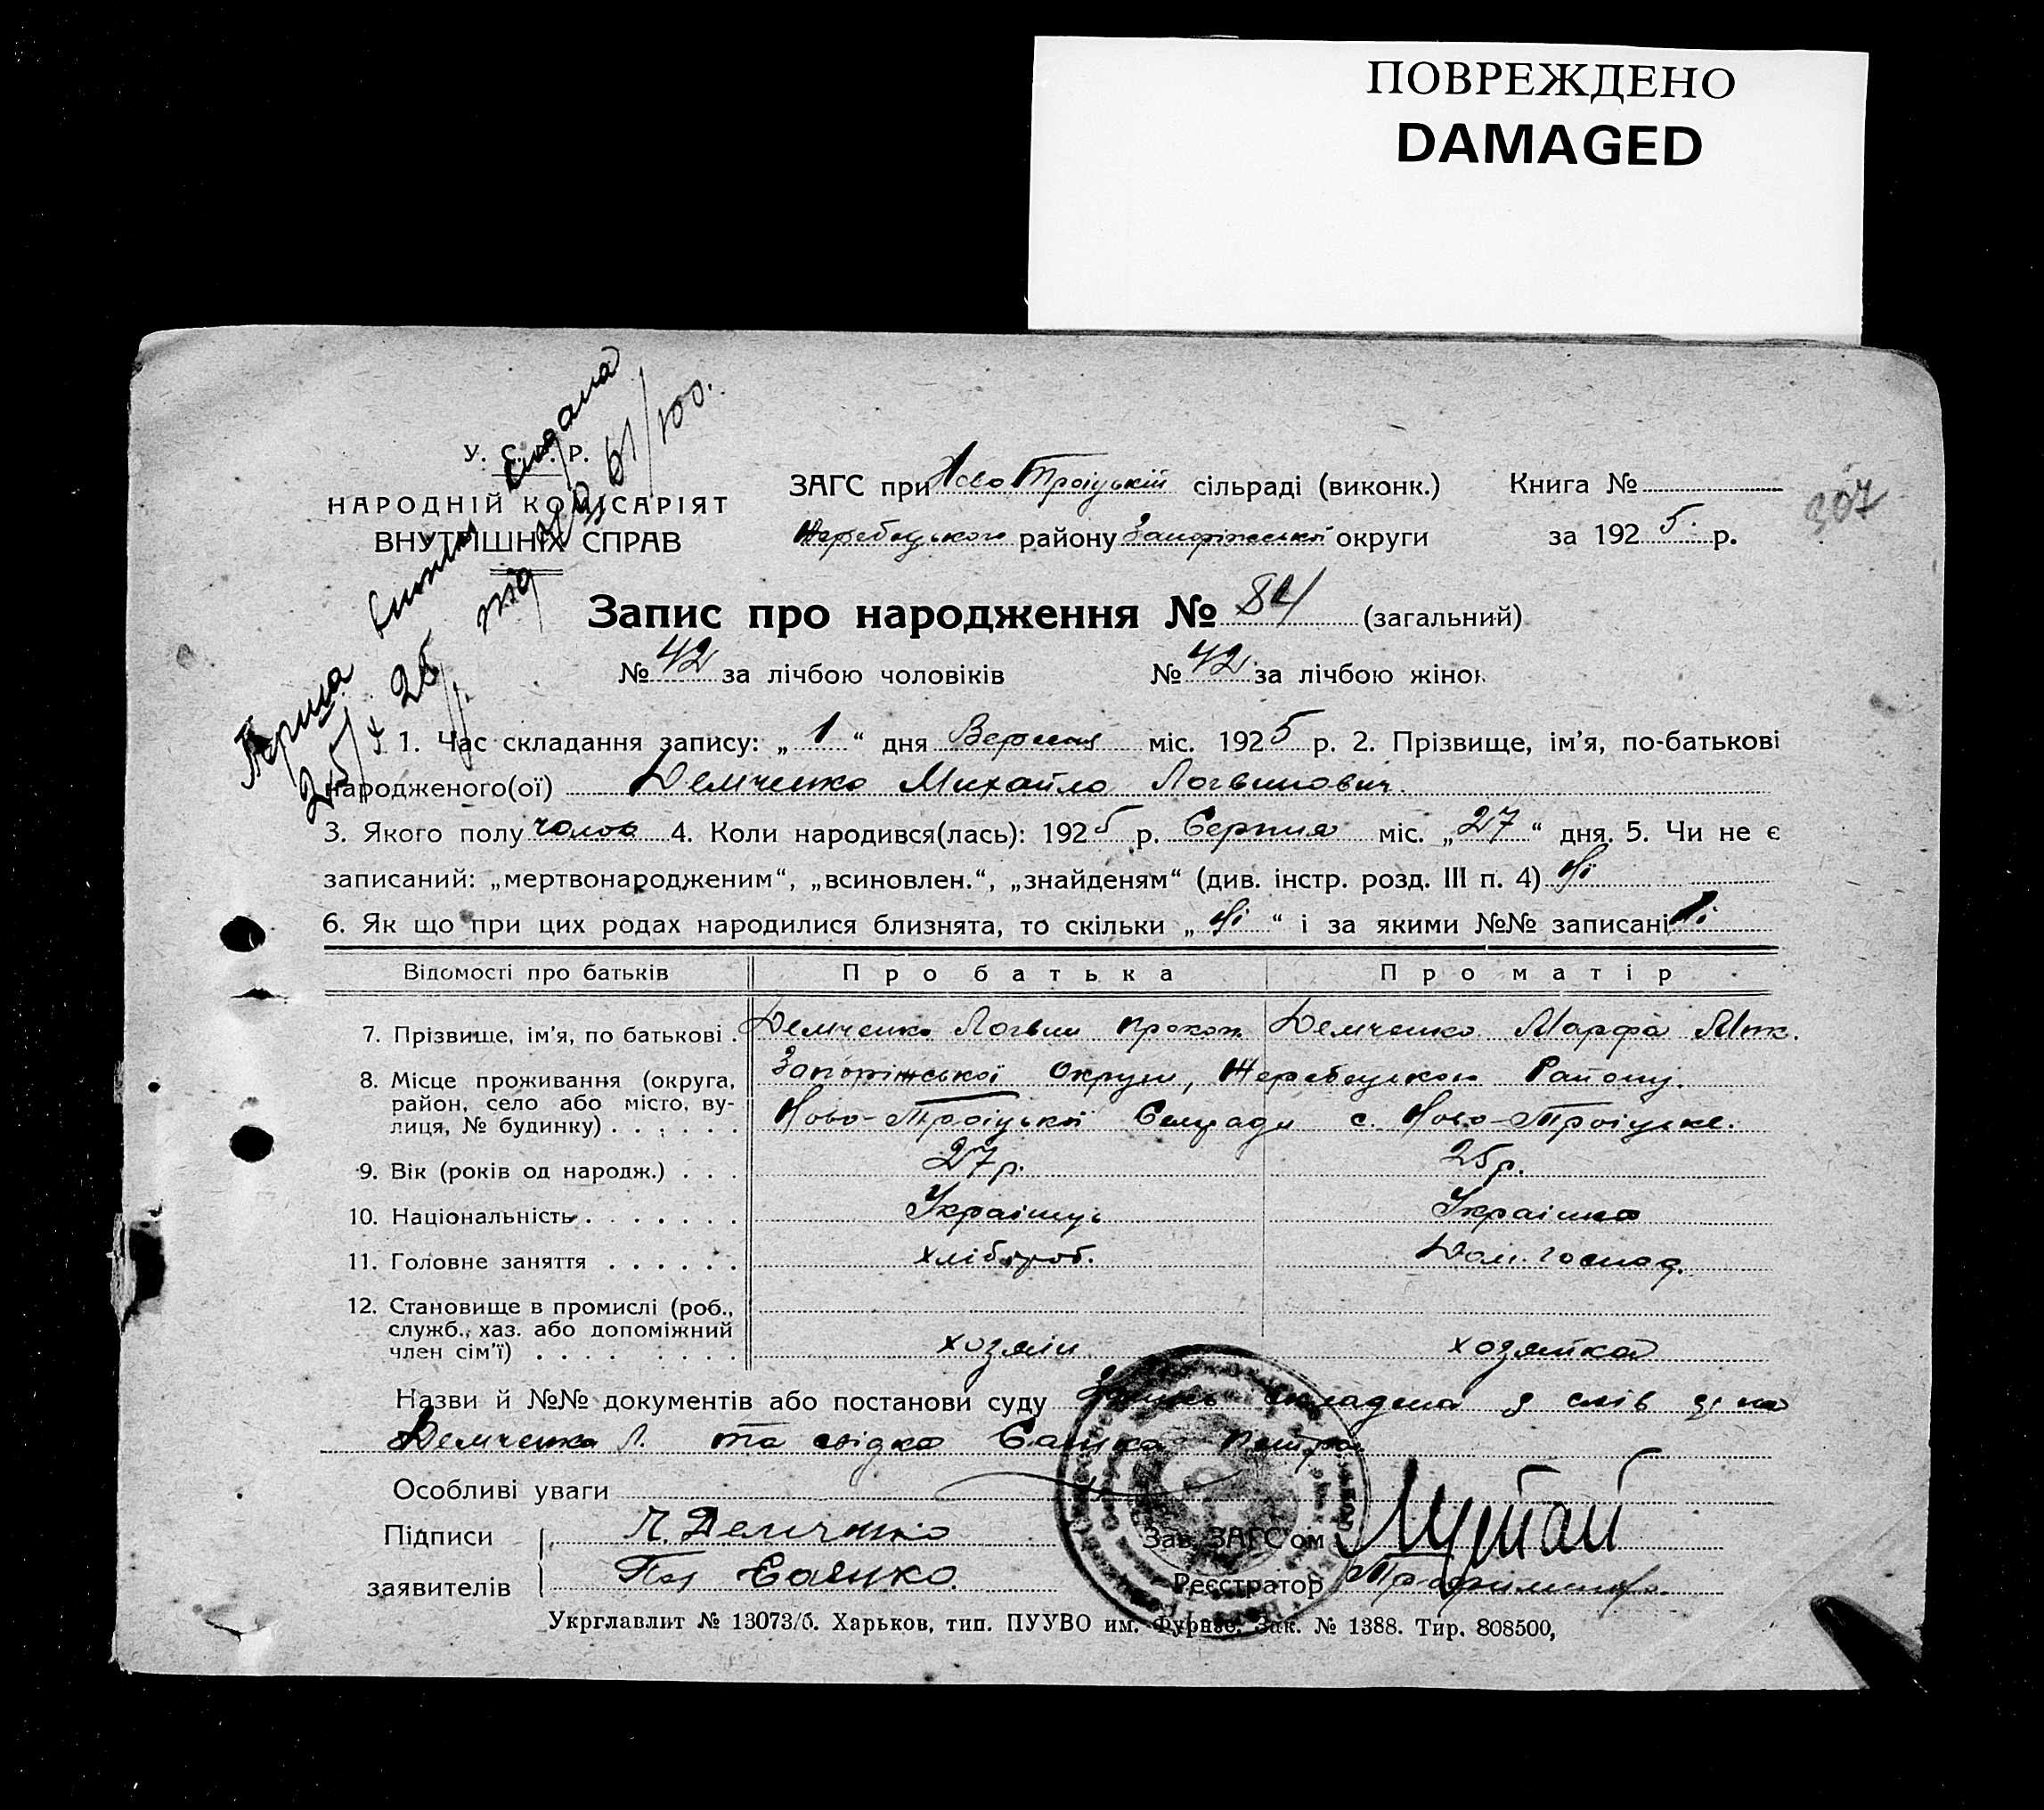 ПОВРЕЖДЕНО
DAMAGED
307
Перша випись видана
25/X 25 р. під № 61/100.
У. С. Р. Р.
НАРОДНІЙ КОМІСАРІЯТ
ВНУТРІШНІХ СПРАВ
ЗАГС при Ново Троіцькій сільраді (виконк.) Книга №
Жеребецького району Запоріжської округи за 1925 р.
Запис про народження № 84 (загальний)
№ 42 за лічбою чоловіків № 42 за лічбою жінок
1. Час складання запису: „ 1 “ дня Вересня міс. 1925 р. 2. Прізвище, ім’я, по-батькові
народженого(ої) Демченко Михайло Логвинович
3. Якого полу чолов 4. Коли народився(лась): 1925 р. Серпня міс. „ 27 “ дня. 5. Чи не є
записаний: „мертвонародженим“, „всиновлен.“, „знайденям“ (див. інстр. розд. III п. 4) Ні
6. Як що при цих родах народилися близнята, то скільки „ Ні “ і за якими №№ записані Ні
Відомості про батьків Про батька Про матір
7. Прізвище, ім’я, по батькові . Демченко Логвин Прокоп. Демченко Марфа Мик.
8. Місце проживання (округа, район, село або місто, вулиця, № будинку) . . . . . . Запоріжської Округи, Жеребецького Району.
Ново-Троіцької Сельради с. Ново-Троіцьке.
9. Вік (років од народж.) . . . 27 р. 25 р.
10. Національність . . . . . . . Українець Українка
11. Головне заняття . . . . . . хлібороб. Дом. господ.
12. Становище в промислі (роб.,
служб., хаз. або допоміжний
член сім’ї) . . . . . . . . хозяїн хозяйка
Назви й №№ документів або постанови суду Запись складена з слів
Демченка Л. та свідка Саенка Петра
Особливі уваги
Підписи Л. Демченко Зав. ЗАГС’ом
заявителів Саенко Реєстратор
Укрглавлит № 13073/б. Харьков, тип. ПУУВО им. Фрунзе. Зак. № 1388. Тир. 808500,